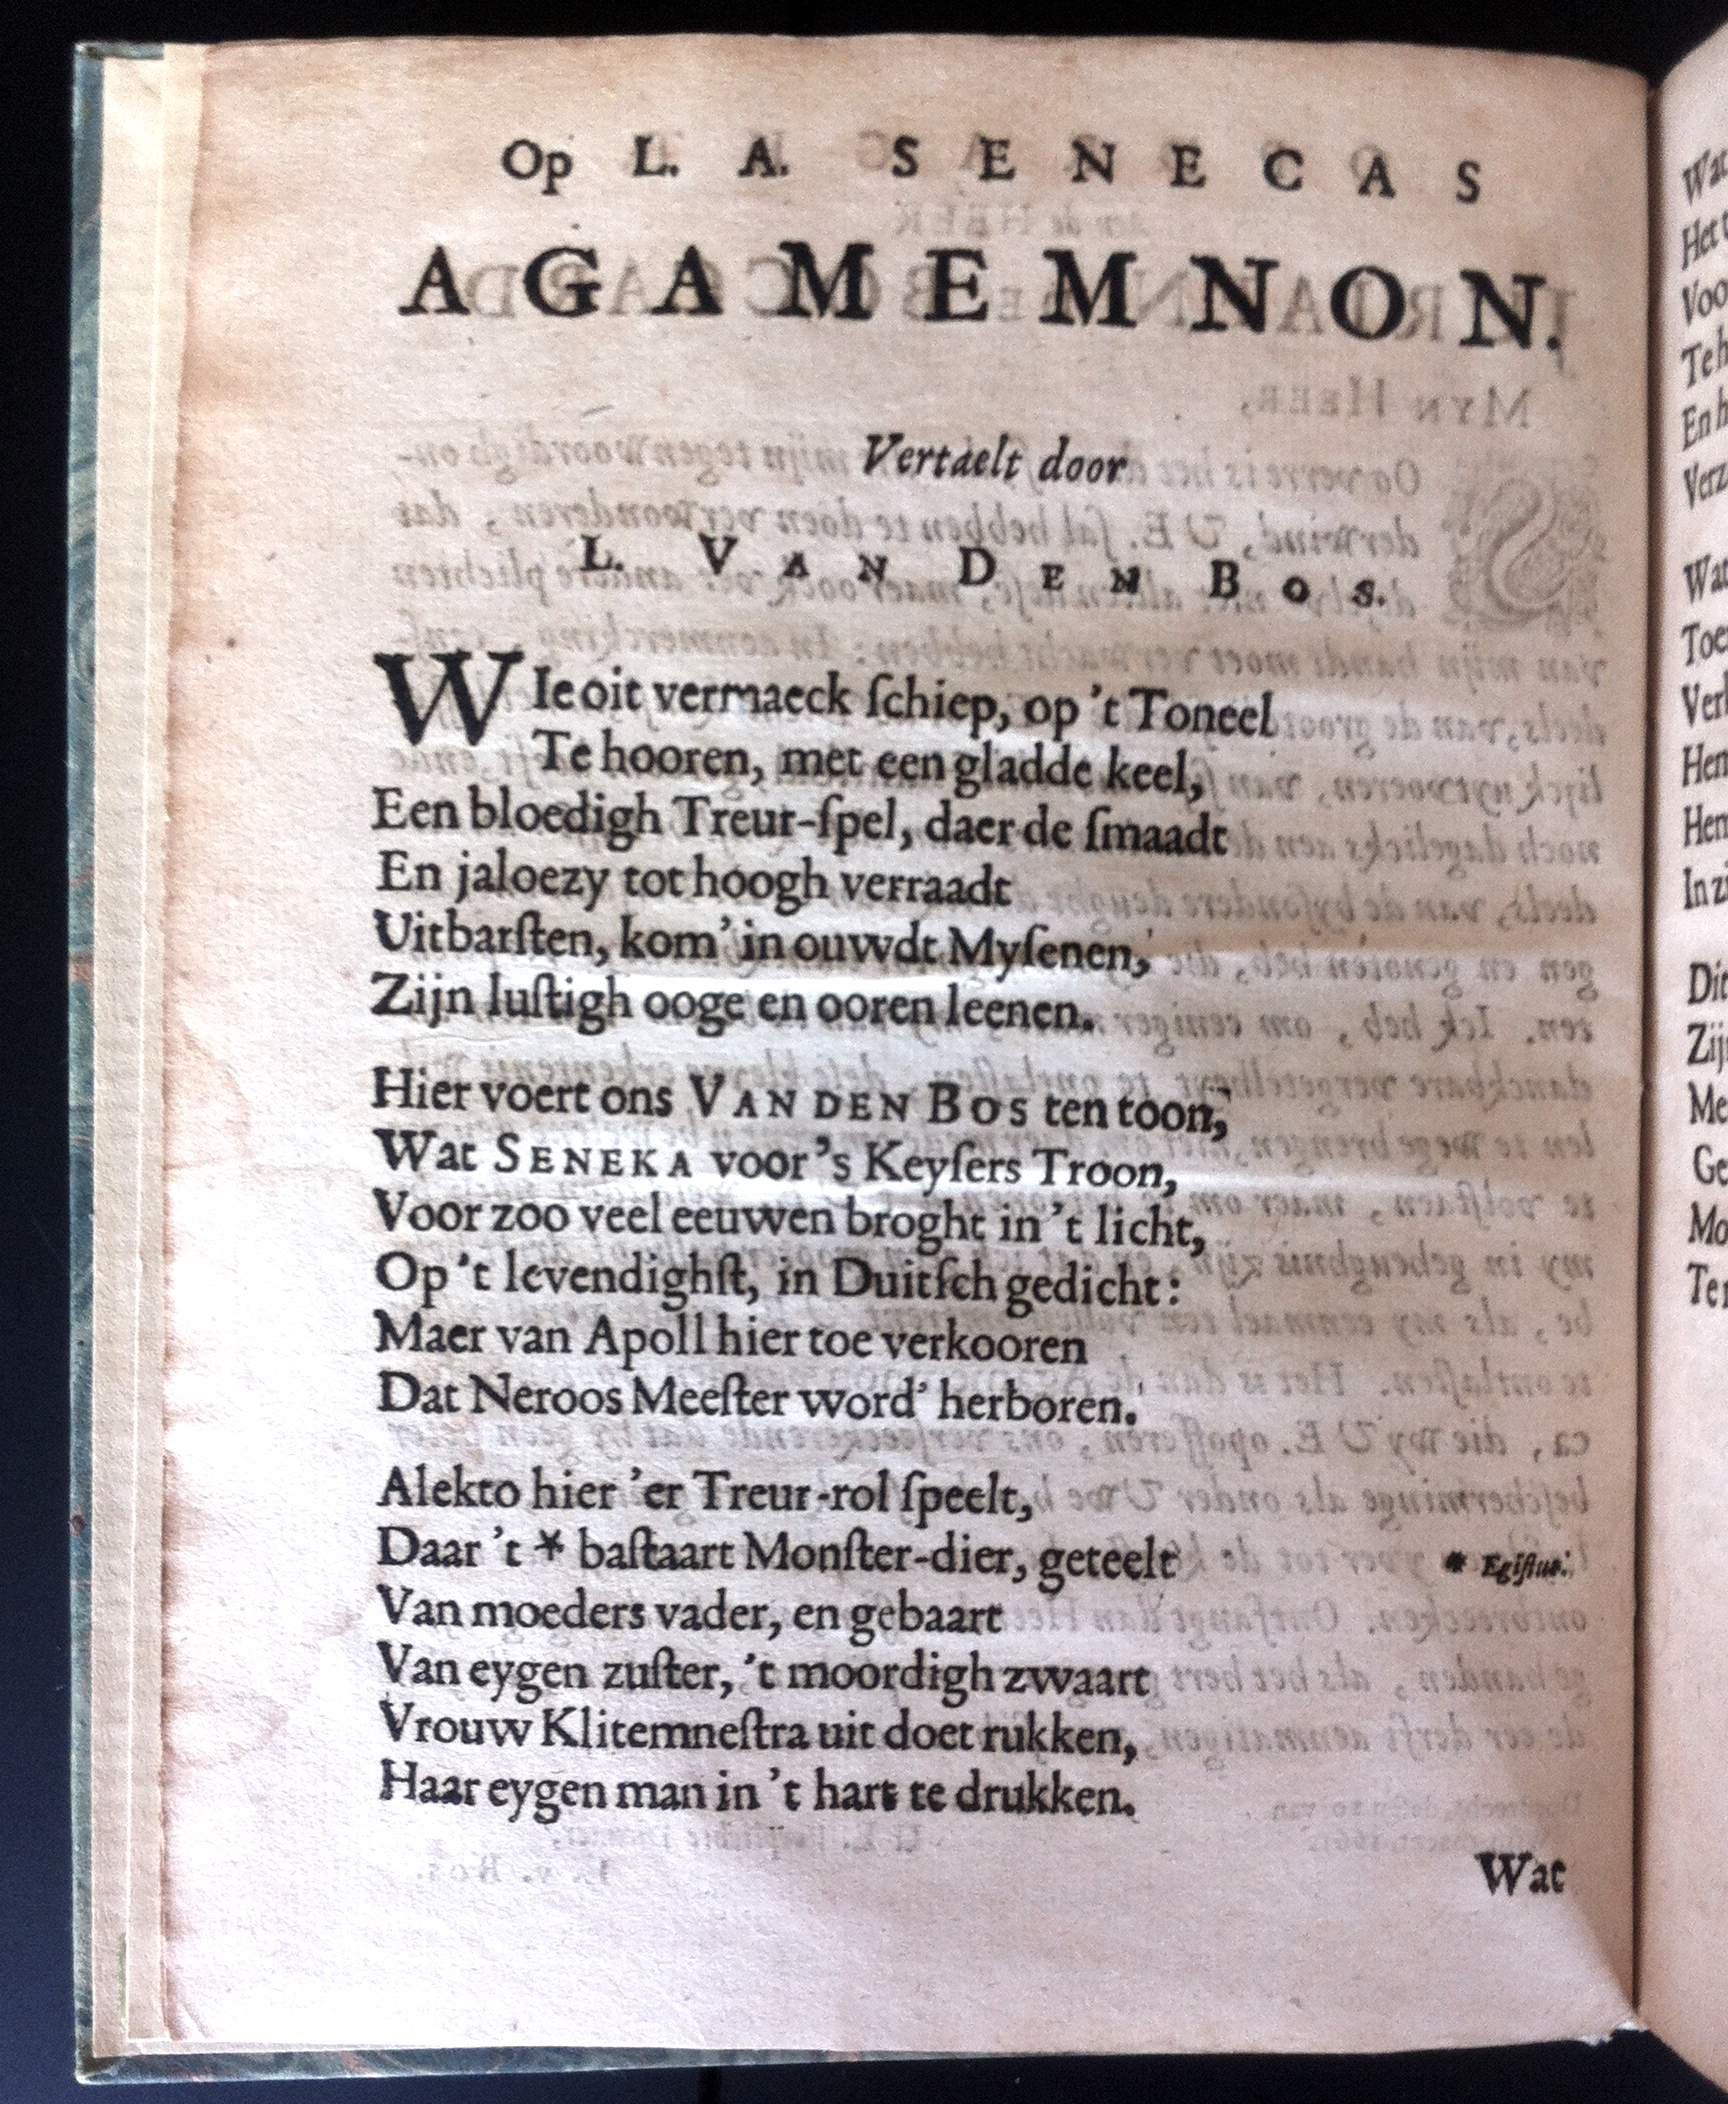 Op L. A. SENECAS
AGAMEMNON.
Vertaelt door
L. VAN DEN BOS.
WIe oit vermaeck ſchiep, op 't Toneel
Te hooren, met een gladde keel,
Een bloedigh Treur-ſpel, daer de ſmaadt
En jaloezy tot hoogh verraadt
Uitbarſten, kom' in ouwdt Myſenen,
Zijn luſtigh ooge en ooren leenen.
Hier voert ons VAN DEN BOS ten toon,
Wat SENEKA voor 's Keyſers Troon,
Voor zoo veel eeuwen broght in 't licht,
Op 't levendighſt, in Duitſch gedicht:
Maer van Apoll hier toe verkooren
Dat Neroos Meeſter word' herboren.
Alekto hier 'er Treur-rol ſpeelt,
Daar 't * baſtaart Monſter-dier, geteelt
* Egiſtus.
Van moeders vader, en gebaart
Van eygen zuſter, 't moordigh zwaart
Vrouw Klitemneſtra uit doet rukken,
Haar eygen man in 't hart te drukken.
Wat